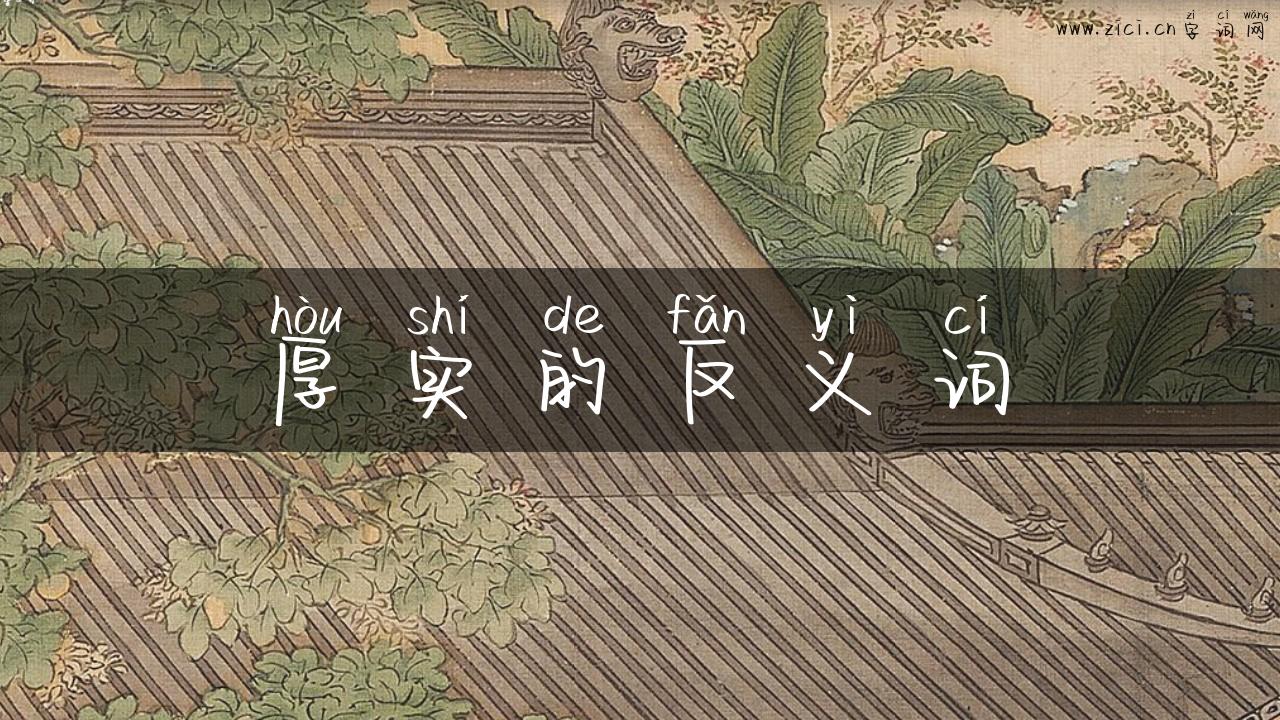 zì cí wǎng
www.zici.cn 字 词 网
hòu shí de fǎn yì cí
厚 实 的 反 义 词